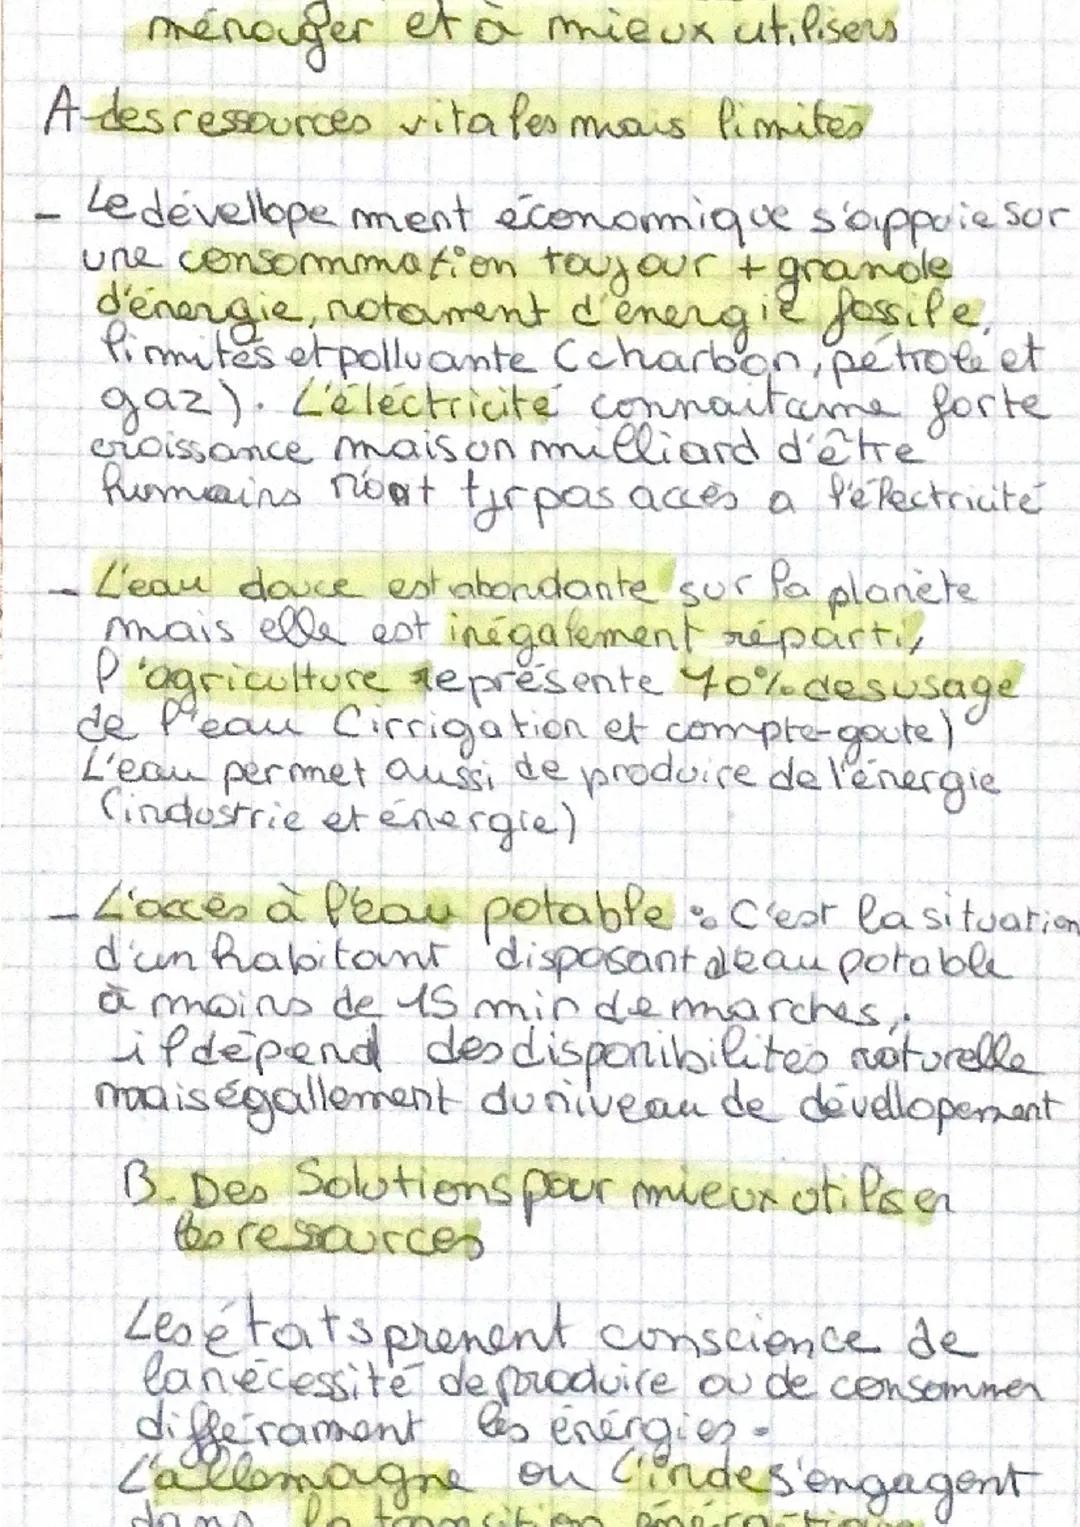 ménager et à mieux utilisers
A-des ressources vitales mais limités
- Le dévellope ment économique s'appuie sur
une consommation toujour + grande
d'énergie, notament d'énergie fossile,
limités et polluante (charbon, pétrole et
gaz). L'éléctricité connait une forte
croissance mais un milliard d'être
humains n'ont tjr pas accès a l'électricité
- L'eau douce est abondante sur la planète
mais elle est inégalement réparti,
l'agriculture représente 70% des usage
de l'eau (irrigation et compte-goute)
L'eau permet aussi de produire de l'énergie
(industrie et énergie)
- L'accès à l'eau potable : C'est la situation
d'un habitant disposant d'eau potable
à moins de 15 min de marches,.
il dépend des disponibilités naturelle
mais égallement du niveau de dévellopement
B- Des Solutions pour mieux utiliser
les ressources
Les états prenent conscience de
la nécessité de produire ou de consommer
différament les énérgies.
L'allemagne ou l'inde s'engagent
dans la transition énérgétique